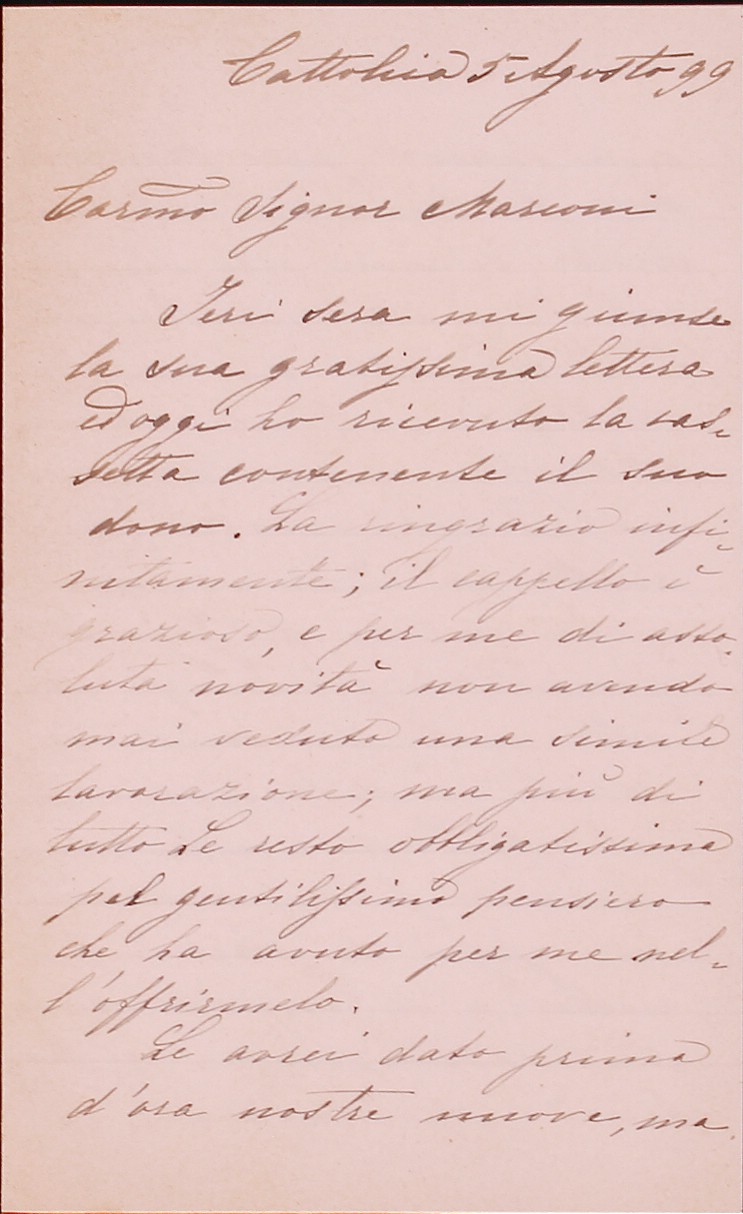 Cattolica 5 Agosto 99
Carmo Signor Marconi
Ieri sera mi giunse
la sua gratissima lettera
ed oggi ho ricevuto la cas-
setta contenente il suo
dono. La ringrazio infi-
nitamente; il cappello è
grazioso, e per me di asso-
luta novità non avendo
mai veduto una simile
lavorazione; ma più di
tutto Le resto obbligatissima
pel gentilissimo pensiero
che ha avuto per me nel-
l'offrirmelo.
Le avrei dato prima
d'ora nostre nuove, ma